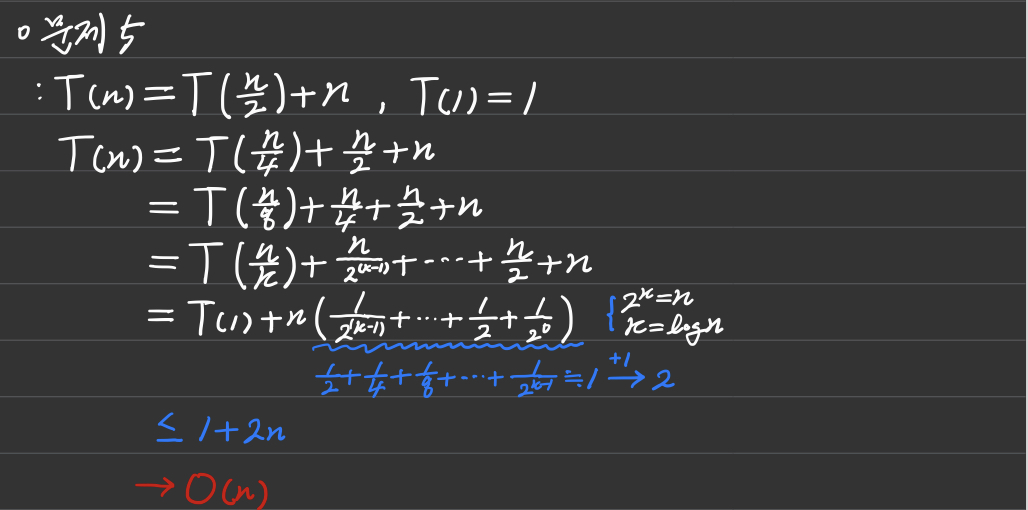 ○ 문제 5
: T(n) = T(n/2) + n , T(1) = 1
T(n) = T(n/4) + n/2 + n
= T(n/8) + n/4 + n/2 + n
= T(n/k) + n/2^(k-1) + ---- + n/2 + n
= T(1) + n(1/2^(k-1) + ... + 1/2 + 1/2^0) { 2^k = n
k = logn
1/2 + 1/4 + 1/8 + ... + 1/2^(k-1) ≒ 1 +1→ 2
≤ 1 + 2n
→ O(n)